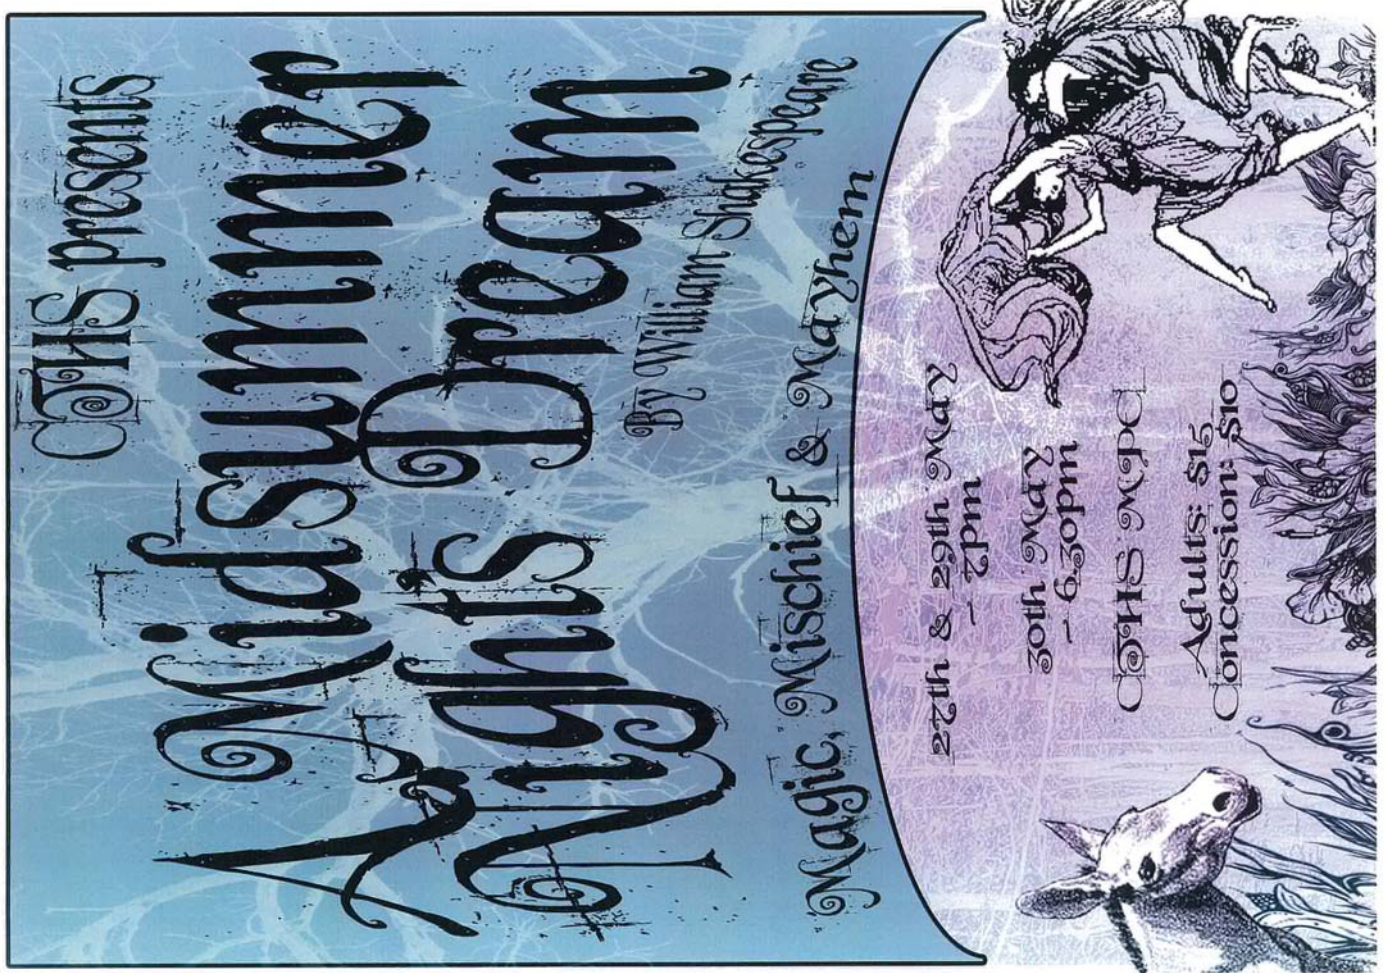 COTHS presents
A Midsummer
Nights Dream
By William Shakespeare
Magic, Mischief & Mayhem
27th & 29th May
- 2pm
30th May
- 6.30pm
COTHS MPC
Adults: $15
Concession: $10